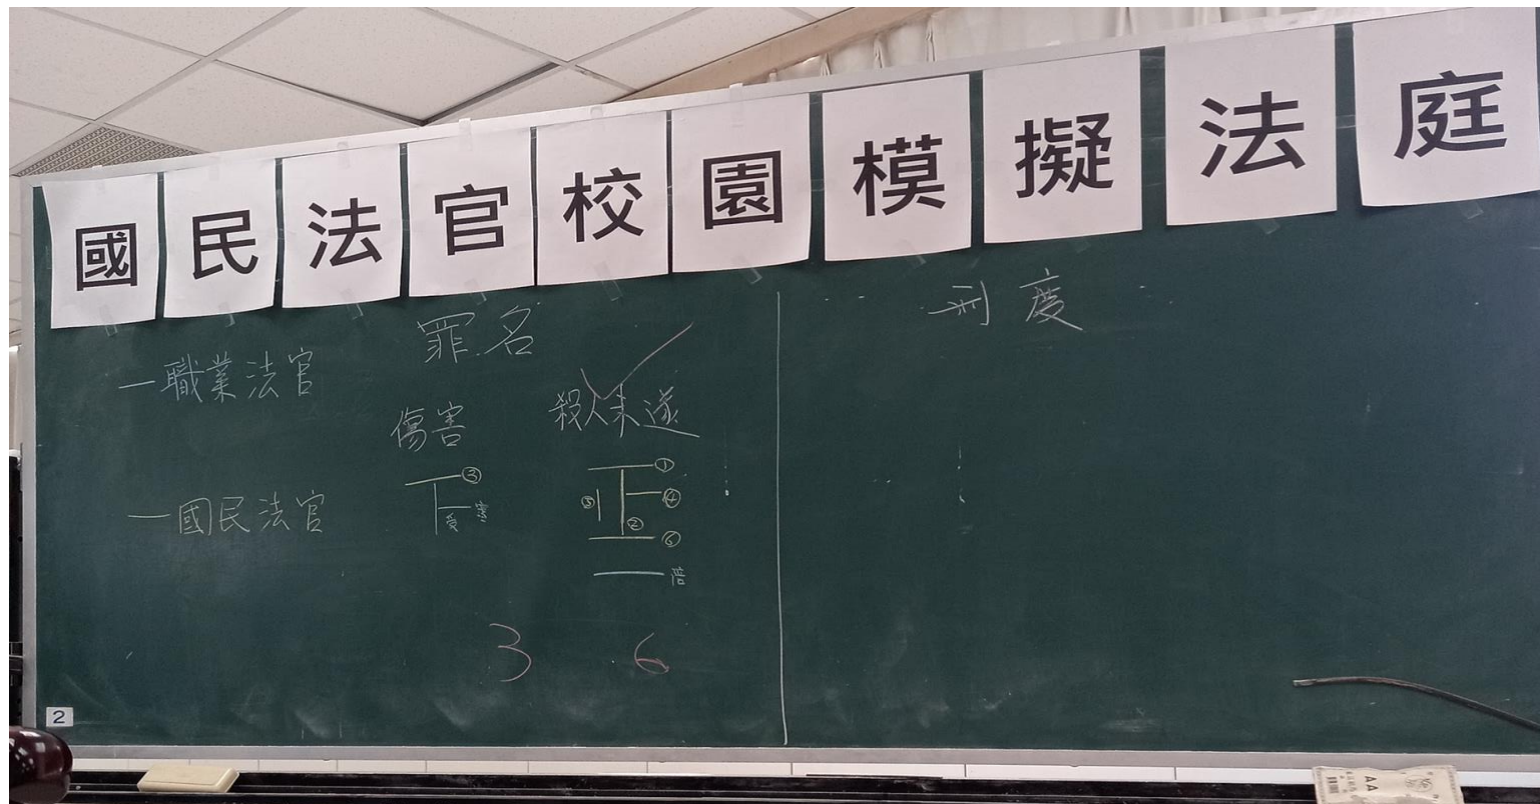 國民法官校園模擬法庭
罪名
刑度
一職業法官
傷害
殺人未遂
一國民法官
③
受害
①
③
④
②
⑥
倍
3
6
2
AA